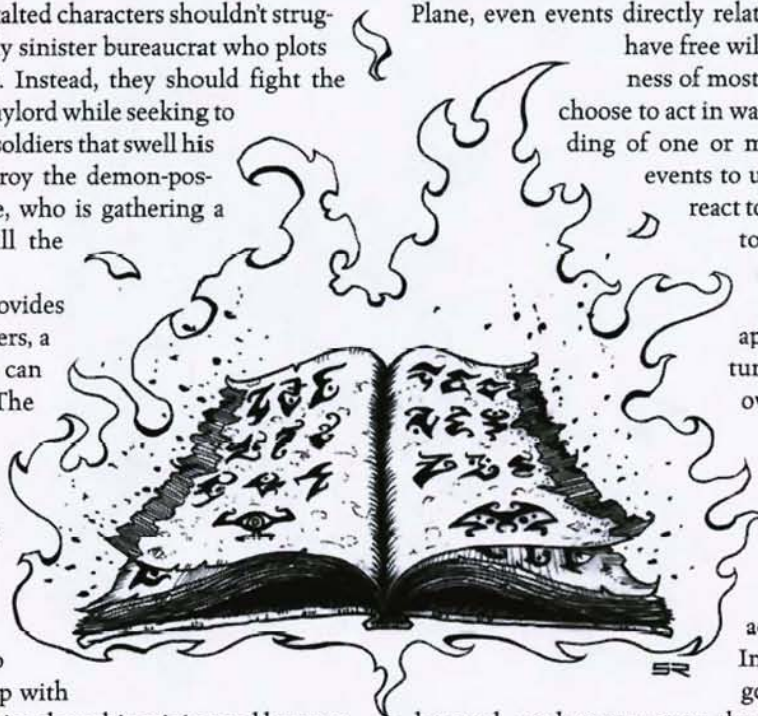 alted characters shouldn't strug-
y sinister bureaucrat who plots
. Instead, they should fight the
ylord while seeking to
soldiers that swell his
roy the demon-pos-
e, who is gathering a
ll the
ovides
ers, a
can
The
p with
Plane, even events directly relat
have free wil
ness of most
choose to act in wa
ding of one or m
events to u
react to
to
ap
tur
ov
In
go
SR